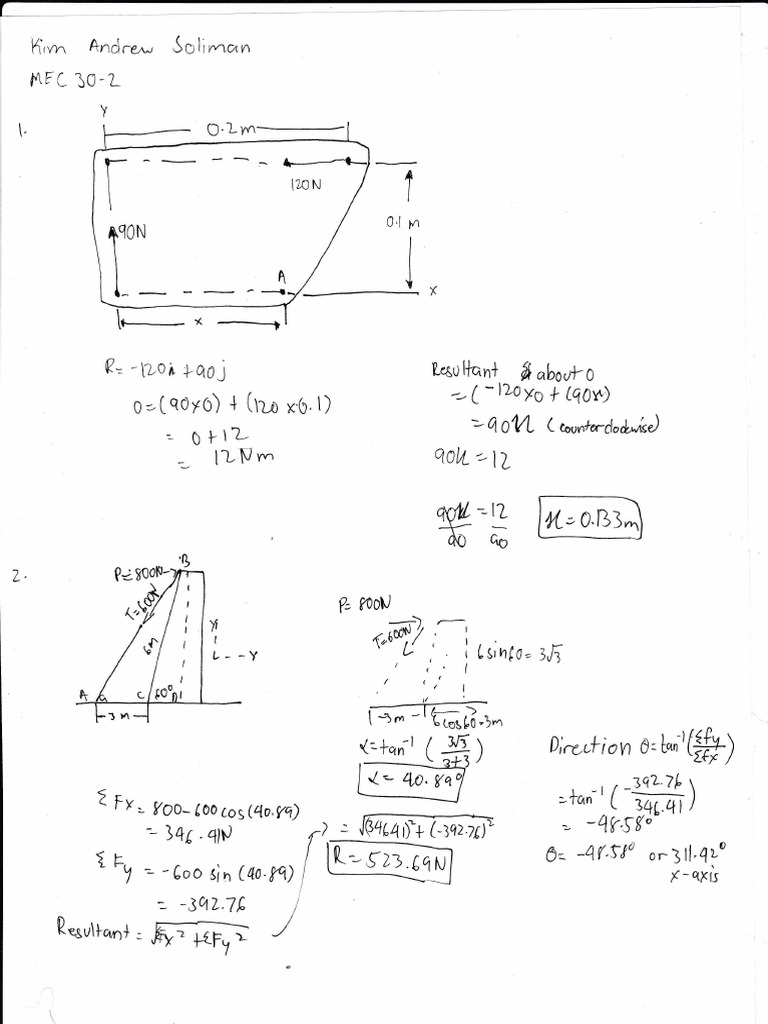 Kim Andrew Soliman
MEC 30-2
1.
Y
0.2m
120N
90N
0.1 m
A
X
x
R = -120i + 90j
0 = (90x0) + (120 x 0.1)
= 0+12
= 12Nm
Resultant about 0
= (-120x0 + (90x)
= 90x (counterclockwise)
90x = 12
90x/90 = 12/90
x = 0.133m
2.
P = 800N
B
T=600N
6M
Y
A
α
C
60°
D
3 m
P = 800N
T=600N
6 sin60 = 3√3
3m
6cos60=3m
α = tan⁻¹ (3√3/3+3)
α = 40.89°
Direction θ = tan⁻¹ (Σfy/Σfx)
= tan⁻¹ (-392.76/346.41)
= -48.58°
θ = -48.58° or 311.42°
x-axis
ΣFx = 800-600cos(40.89)
= 346.41N
ΣFy = -600 sin (40.89)
= -392.76
Resultant = √Fx² + ΣFy²
= √(346.41)² + (-392.76)²
R = 523.69N